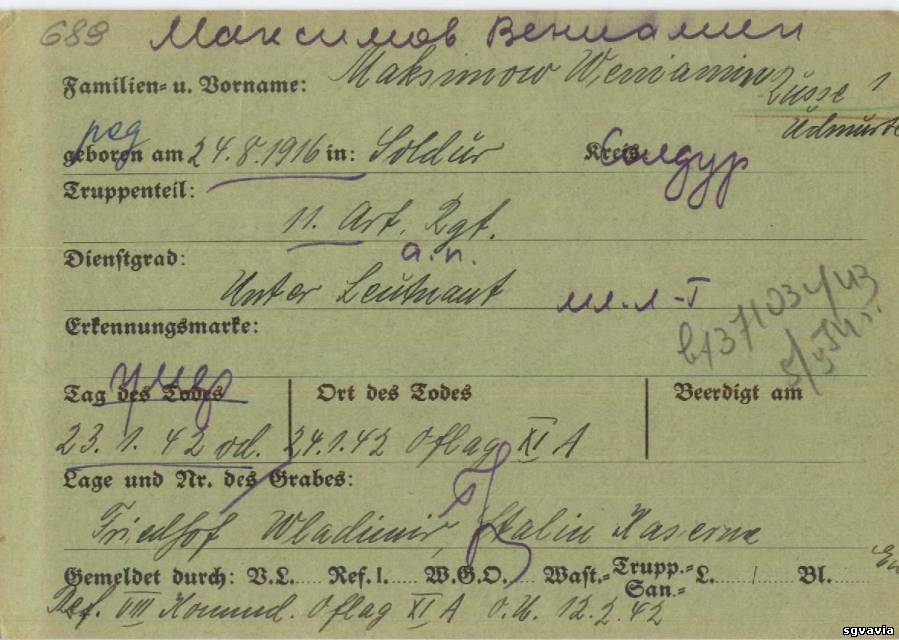 689 Максимов Вениамин
Familien- u. Vorname: Maksimow Weniamin
Russe 1
Udmurte
род
geboren am 24.8.1916 in: Soldür Kreis Солдур
Truppenteil:
11. Art. Rgt.
а.п.
Dienstgrad:
Unter Leutnant мл.л-т
Erkennungsmarke:
умер
Tag des Todes Ort des Todes Beerdigt am
23.1.42 od. 24.1.42 Oflag XI A
Lage und Nr. des Grabes:
Friedhof Wladimir, Stalin Kaserne
Gemeldet durch: V.L. Ref. I. W.G.O. Wast.- Trupp.- San.- L. / Bl.
Ref. VIII Kommd. Oflag XI A O.U. 12.2.42
sgvavia